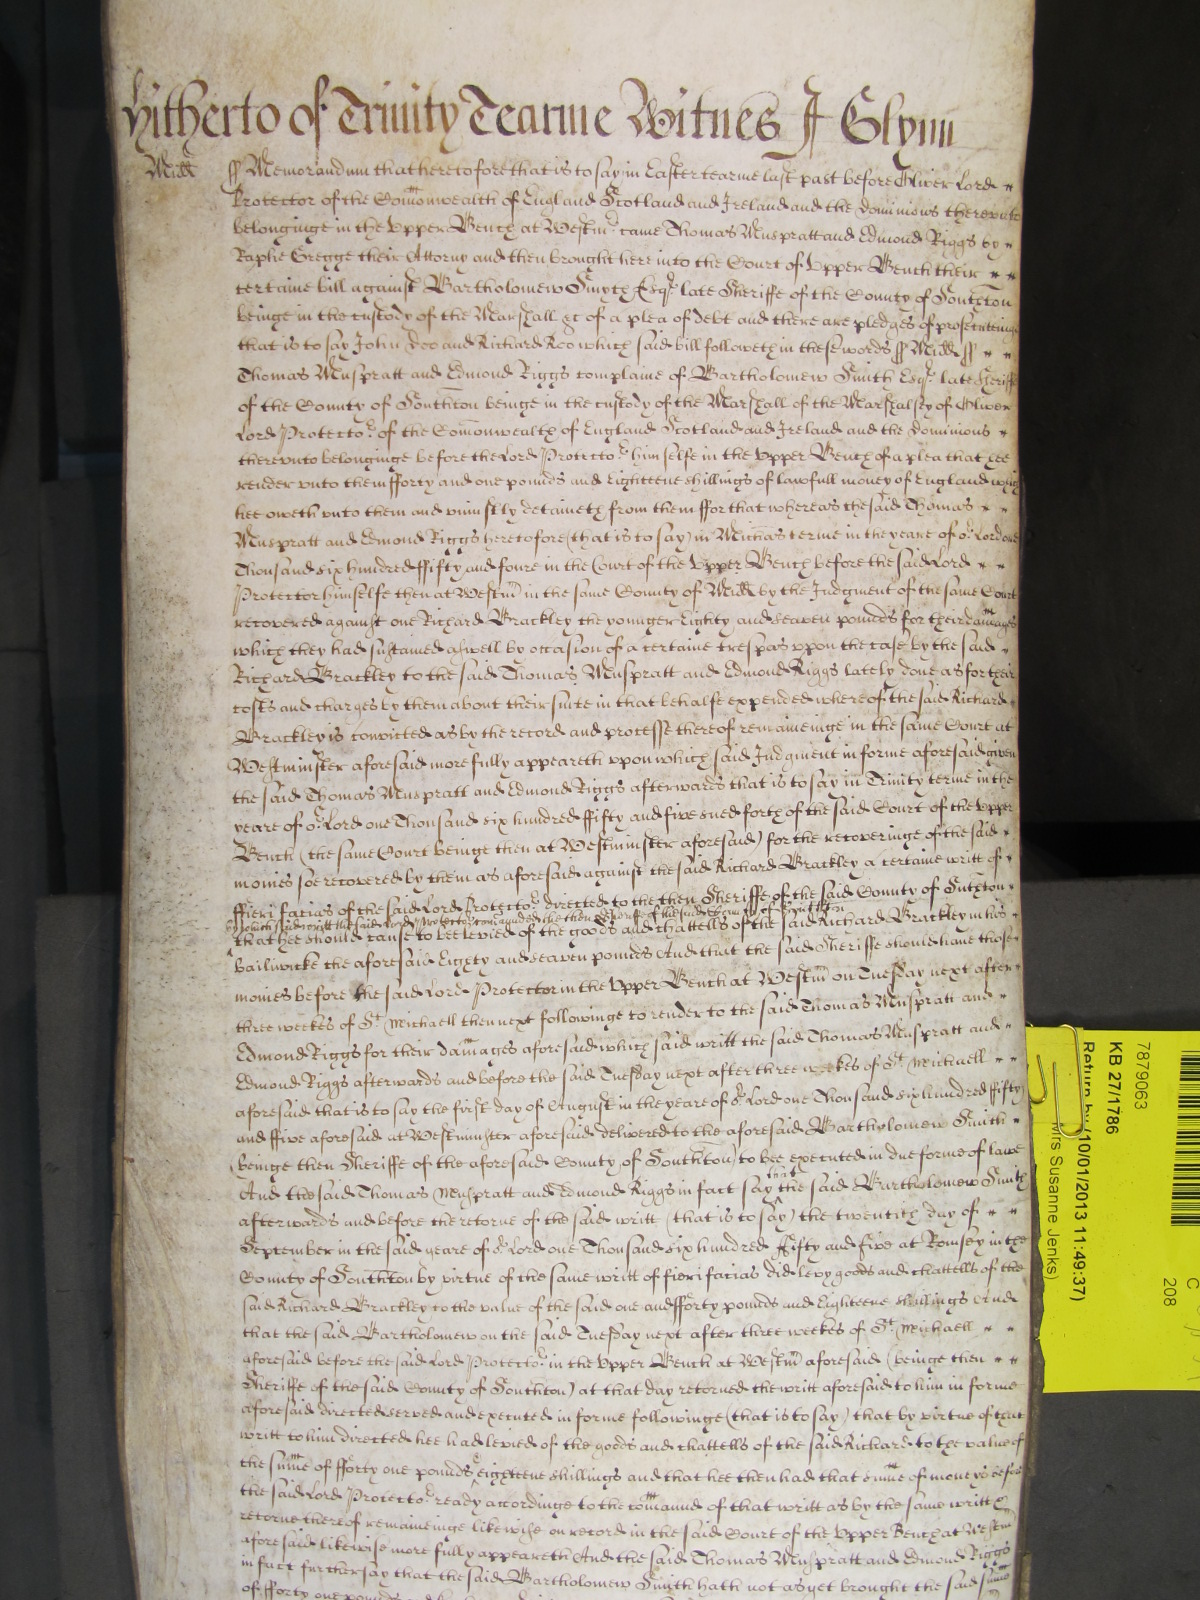 Hitherto of Trinity Tearme Witnes J Glynn
Midd ss Memorandum that heretofore that is to say in Easter tearme last past before Oliver Lord
Protector of the Comonwealth of England Scotland and Ireland and the dominions thereunto
belonginge in the Upper Bench at Westm came Thomas Muspratt and Edmond Riggs by
Raphe Gregge their Attorny and then brought here into the Court of Upper Bench their
certaine bill against Bartholomew Smyth Esqr late Sheriffe of the County of Southton
beinge in the custody of the Marshall &c of a plea of debt and there are pledges of prosecuteinge
that is to say John Doo and Richard Roo which said bill followeth in these words ss Midd ss
Thomas Muspratt and Edmond Riggs complaine of Bartholomew Smith Esqr late Sheriffe
of the County of Southton beinge in the custody of the Marshall of the Marshalsey of Oliver
Lord Protector of the Comonwealth of England Scotland and Ireland and the dominions
thereunto belonginge before the Lord Protector himselfe in the Upper Bench of a plea that hee
render unto them fforty and one pounds and Eighteene shillings of lawfull money of England which
hee oweth unto them and uniustly detaineth from them ffor that whereas the said Thomas
Muspratt and Edmond Riggs heretofore (that is to say) in Michas terme in the yeare of or Lord one
Thousand six hundred ffifty and foure in the Court of the Upper Bench before the said Lord
Protector himselfe then at Westm in the same County of Midd by the Judgment of the same Court
recovered against one Richard Brackley the younger Eighty and seaven pounds for their damages
which they had sustained aswell by occasion of a certaine trespas upon the case by the said
Richard Brackley to the said Thomas Muspratt and Edmond Riggs lately done as for their
costs and charges by them about their suite in that behalfe expended whereof the said Richard
Brackley is convicted as by the record and processe thereof remaineinge in the same Court at
Westminster aforesaid more fully appeareth upon which said Judgment in forme aforesaid given
the said Thomas Muspratt and Edmond Riggs afterwards that is to say in Trinity terme in the
yeare of or Lord one Thousand six hundred ffifty and five sued forth of the said Court of the Upper
Bench (the same Court beinge then at Westminster aforesaid) for the recoveringe of the said
monies soe recovered by them as aforesaid against the said Richard Brackley a certaine writt of
ffieri facias of the said Lord Protector directed to the then Sheriffe of the said County of Suthton
by which said writt the said Lord Protector comanded the then Sheriffe of the said County of Southton
that hee should cause to bee levied of the goods and chattells of the said Richard Brackley in his
bailiwicke the aforesaid Eighty and seaven pounds And that the said Sheriffe should have those
monies before the said Lord Protector in the Upper Bench at Westm on Tuesday next after
three weekes of St Michaell then next followinge to render to the said Thomas Muspratt and
Edmond Riggs for their damages aforesaid which said writt the said Thomas Muspratt and
Edmond Riggs afterwards and before the said Tuesday next after three weekes of St Michaell
aforesaid that is to say the first day of August in the yeare of or Lord one Thousand six hundred ffifty
and ffive aforesaid at Westminster aforesaid delivered to the aforesaid Bartholomew Smith
beinge then Sheriffe of the aforesaid County of Southton to bee executed in due forme of lawe
And the said Thomas Muspratt and Edmond Riggs in fact say that the said Bartholomew Smith
afterwards and before the retorne of the said writt (that is to say) the twentith day of
September in the said yeare of or Lord one Thousand six hundred ffifty and five at Romsey in the
County of Southton by virtue of the same writt of fieri facias did levy goods and chattells of the
said Richard Brackley to the value of the said one and fforty pounds and Eighteene shillings And
that the said Bartholomew on the said Tuesday next after three weekes of St Michaell
aforesaid before the said Lord Protector in the Upper Bench at Westm aforesaid (beinge then
Sheriffe of the said County of Southton) at that day retorned the writt aforesaid to him in forme
aforesaid directed served and executed in forme followinge (that is to say) that by virtue of that
writt to him directed hee had levied of the goods and chattells of the said Richard to the value of
the sume of fforty one pounds eighteene shillings and that hee then had that sume of moneys before
the said Lord Protector ready accordinge to the comannd of that writt as by the same writt &
retorne thereof remaineinge likewise on record in the said Court of the Upper Bench at Westm
aforesaid likewise more fully appeareth And the said Thomas Muspratt and Edmond Riggs
in fact further say that the said Bartholomew Smith hath not as yet brought the said sume
of fforty one pounds and
7879063
KB 27/1786
Return by (10/01/2013 11:49:37)
Mrs Susanne Jenks)
C
208